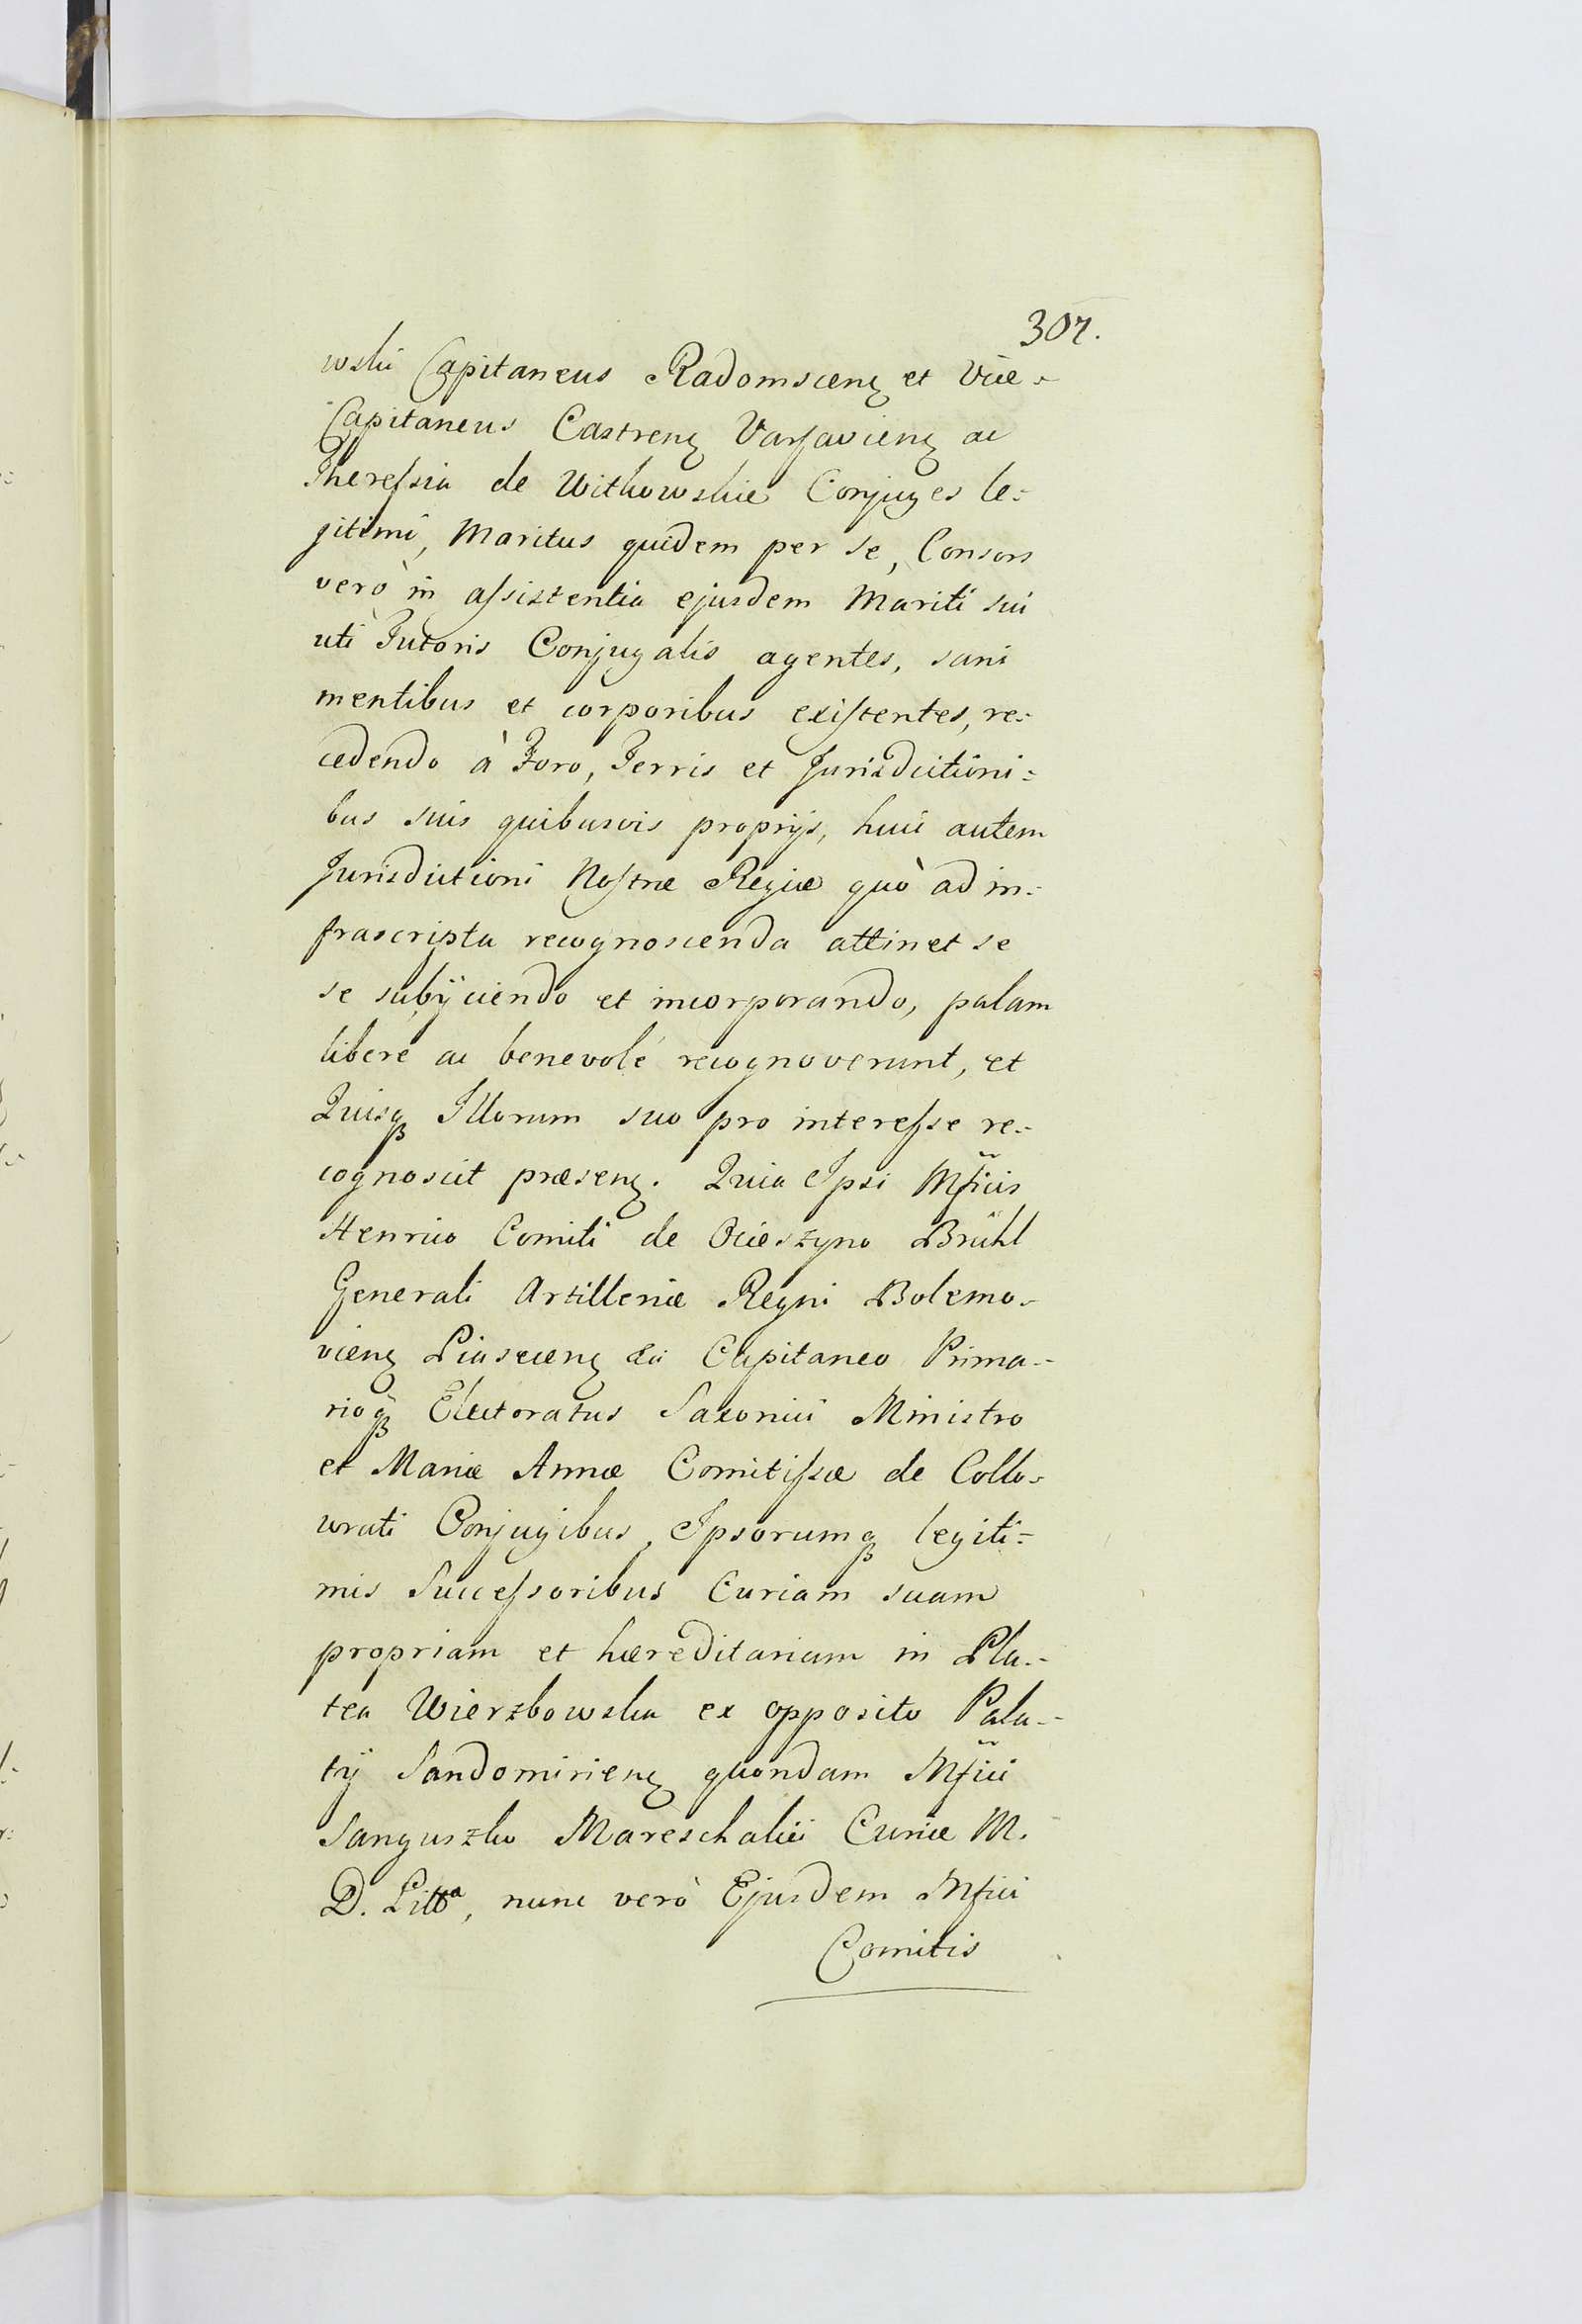 307.
wski Capitaneus Radomscenꝫ et Vice-
Capitaneus Castrenꝫ Varſavienꝫ ac
Thereſsia de Witkowskie Conjuges le-
gitimi, Maritus quidem per se, Consors
verò in aſsistentia ejusdem Mariti sui
uti Tutoris Conjugalis agentes, sani
mentibus et corporibus exiſtentes, re-
cedendo à Foro, Terris et Jurisdictioni-
bus suis quibusvis proprijs, huic autem
Jurisdictioni Noſtræ Regiæ quò ad in-
frascripta recognoscenda attinet se
se subÿciendo et incorporando, palam
libere ac benevolé recognoverunt, et
Quisqꝫ Illorum suo pro intereſse re-
cognoscit præsenꝫ. Quia Ipsi Mficis
Henrico Comiti de Ocieszyno Brühl
Generali Artilleriæ Regni Bolemo-
vienꝫ Piasecenꝫ &ci Capitaneo Prima-
rioqꝫ Electoratus Saxonici Ministro
et Mariæ Annæ Comitiſsæ de Collo-
wrati Conjugibus, Ipsorumqꝫ legiti-
mis Succeſsoribus Curiam suam
propriam et hæreditariam in Pla-
tea Wierzbowska ex opposito Pala-
tÿ Sandomirienꝫ quondam Mfici
Sanguszko Mareschalci Curiæ M.
D. Littᵃ, nunc verò Ejusdem Mfici
Comitis